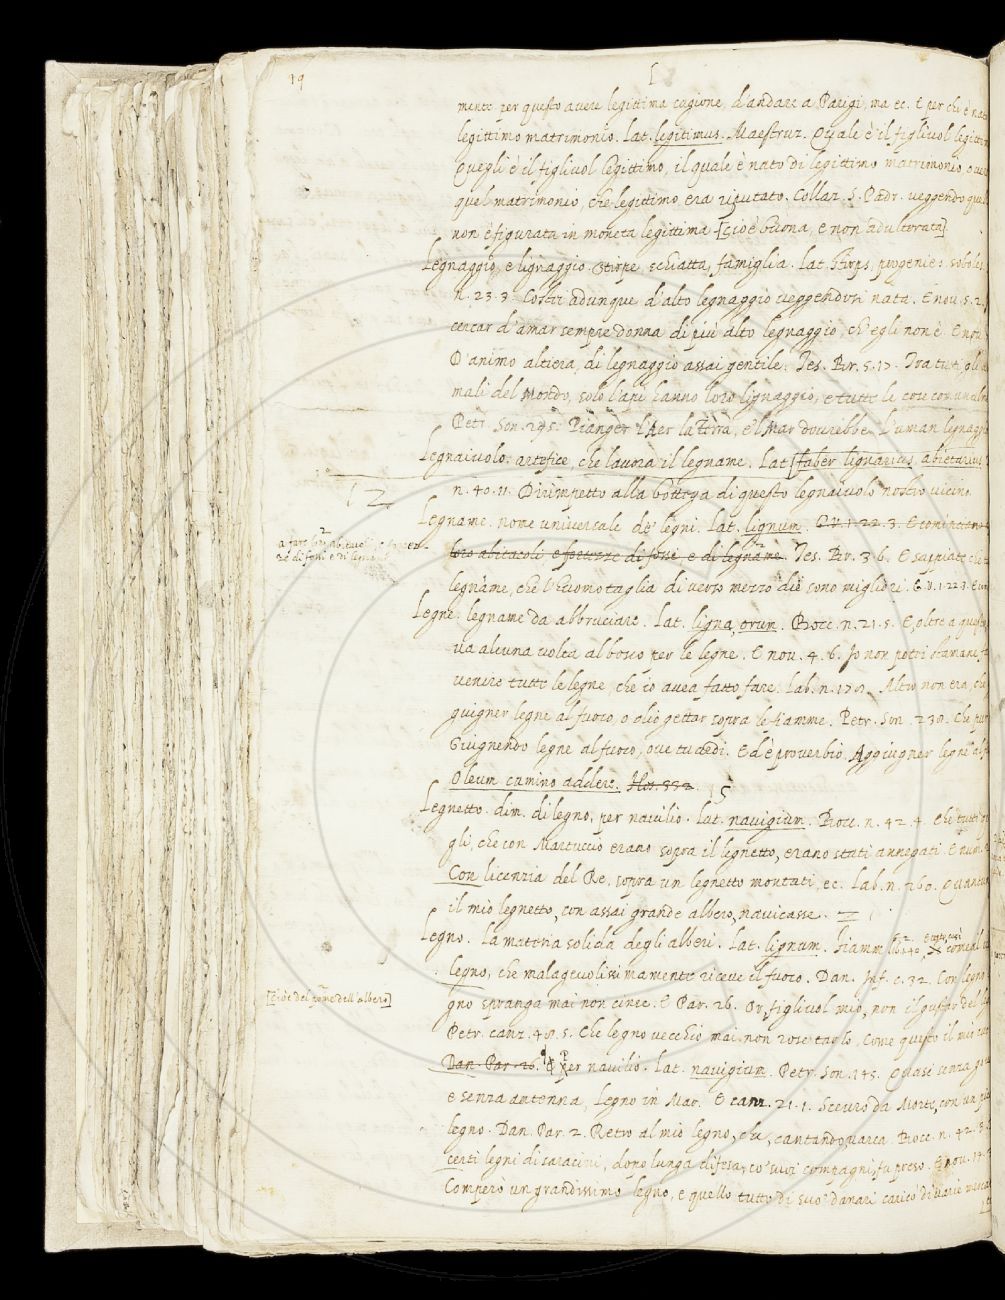 19
L
mente per questo avere legittima cagione, d'andare a Parigi, ma ec. E per chi è nato
legittimo matrimonio. Lat. legitimus. Maestruz. Quale è il figliuol legittimo
Quegli è il figliuol legittimo, il quale è nato di legittimo matrimonio, o vero
quel matrimonio, che legittimo era riputato. Collaz. S. Padr. veggendo
non è figurata in moneta legittima [cioè buona, e non adulterata].
Legnaggio, e lignaggio. Stirpe, schiatta, famiglia. Lat. stirps, progenies, soboles.
n. 23. 3. Costei adunque d'alto legnaggio veggendosi nata. E nov. 5. 2.
cercar d'amar sempre donna di più alto legnaggio, ch'egli non è. E nov.
D'animo altiera, di legnaggio assai gentile. Tes. Br. 5. 17. Tra tutti gli
mali del Mondo, solo l'api hanno loro lignaggio, e tutte le cose
Petr. Son. Pianger l'Aer la Terra, e'l Mar dovrebbe L'uman legnaggio
Legnaiuolo. artefice, che lavora il legname. Lat. [faber lignarius, abietarius
n. 40. 11. Dirimpetto alla bottega di questo legnaiuolo nostro vicino
12
Legname. nome universale de' legni. Lat. lignum. G. V. 1. 22. 3. E cominciarono
a fare
di fossi e di legname
loro abitacoli e fortezze di fossi e di legname. Tes. Br. 3. 6. E sappiate che
legname, che l'huomo taglia di verso mezzo die sono migliori. G. V. 1. 22. 3.
Legne. legname da abbruciare. Lat. ligna, orum. Bocc. n. 21. 5. E, oltre a questo
va alcuna volta al bosco per le legne. E nov. 4. 6. Io non potei stamane
venire tutte le legne, che io avea fatto fare. Lab. n. Altro non era, che
giugner legne al fuoco, o olio gettar sopra le fiamme. Petr. Son. 230. Che
Giugnendo legne al fuoco, ove tu ardi. Ed è proverbio. Aggiugner legne al
Oleum camino addere. Flos. 552. 5
Legnetto. dim. di legno, per navilio. Lat. navigium. Bocc. n. 42. 4. Che tutti
gli, che con Martuccio erano sopra il legnetto, erano stati annegati. E num.
Con licenzia del Re, sopra un legnetto montati, ec. Lab. n. 260. Quantunque
il mio legnetto, con assai grande albero, navicasse.
Legno. La materia solida degli alberi. Lat. lignum. Fiamm. E come
legno, che malagevolissimamente riceve il fuoco. Dan. Inf. c. 32. Con legno
[cioè del pome dell'albero]
gno spranga mai non cinse. E Par. 26. Or, figliuol mio, non il gustar del
Petr. canz. 40. 5. Che legno vecchio mai non rose tarlo, Come questo il mio
Dan. Par. 26. Per navilio. Lat. navigium. Petr. Son. Quasi senza
e senza antenna, Legno in Mar. E canz. 21. 1. Scevro da Morte, con un
legno. Dan. Par. 2. Retro al mio legno, che, cantando, varca. Bocc. n. 42. 3.
certi legni di saracini, dopo lunga difesa, co' suoi compagni, fu preso. E nov. 14.
Comperò un grandissimo legno, e quello tutto di suoi danari caricò di varie